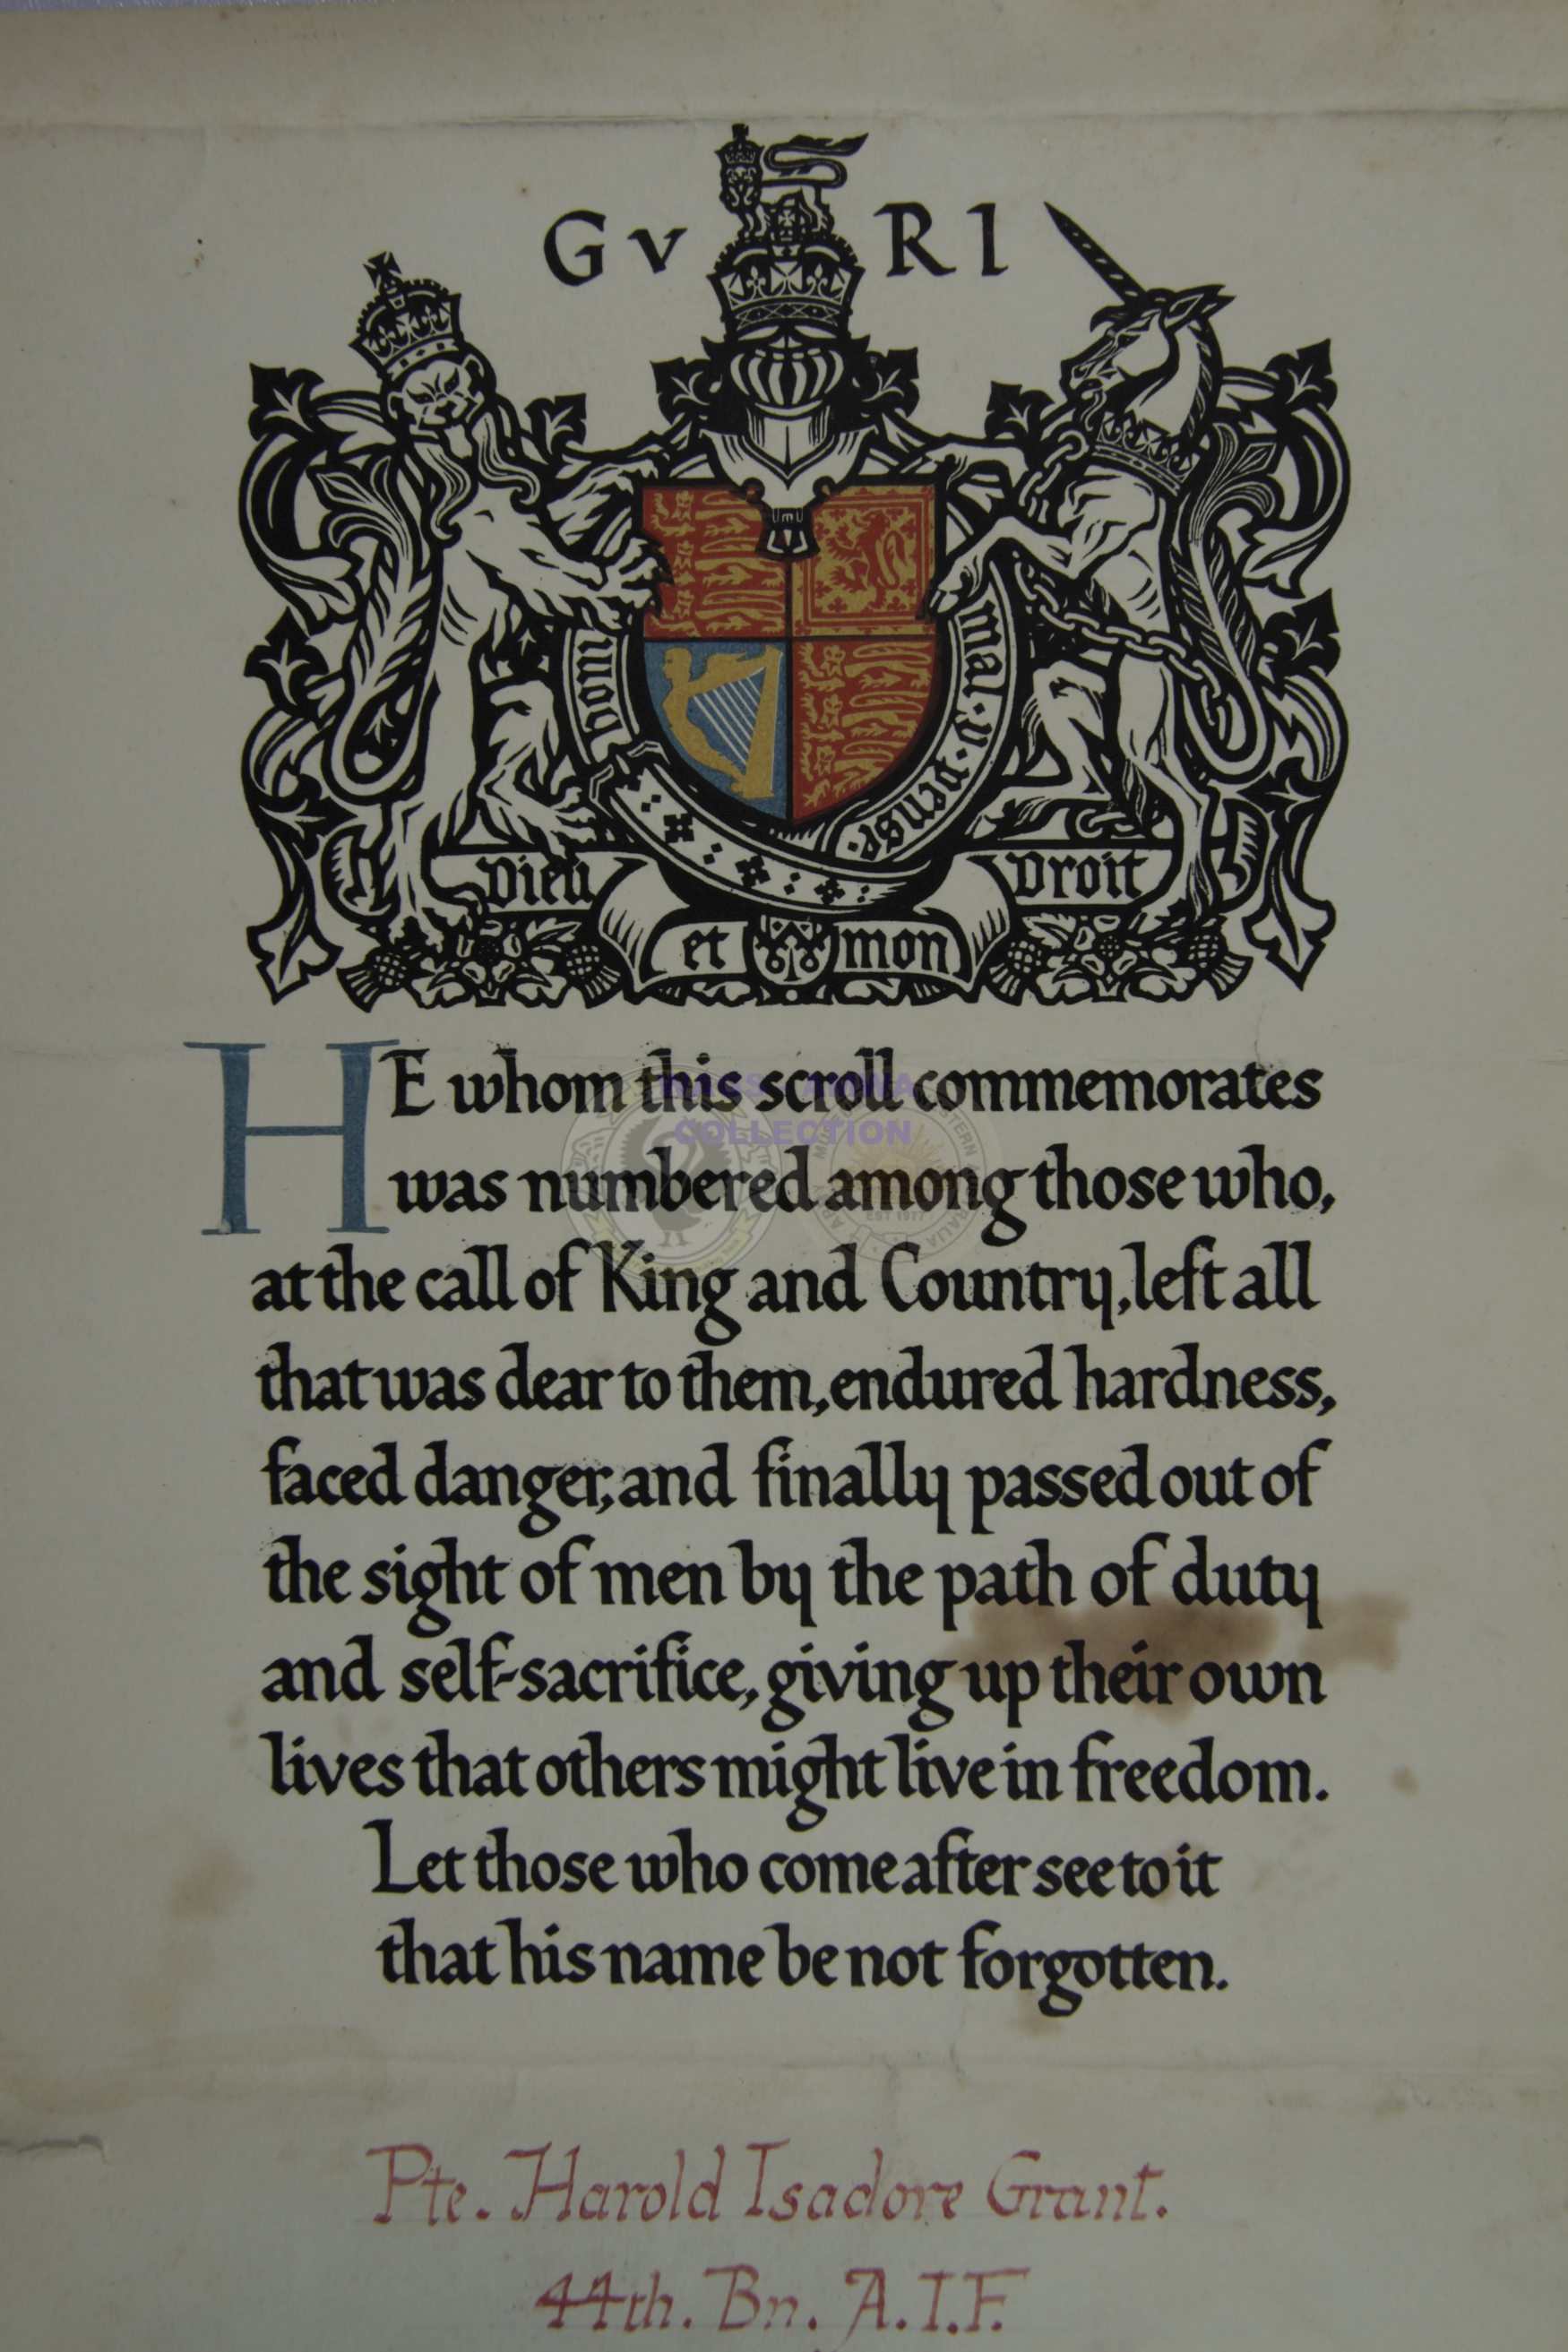 GV RI
honi mal·y·pense·
Dieu et mon Droit
HE whom this scroll commemorates
was numbered among those who,
at the call of King and Country, left all
that was dear to them, endured hardness,
faced danger, and finally passed out of
the sight of men by the path of duty
and self-sacrifice, giving up their own
lives that others might live in freedom.
Let those who come after see to it
that his name be not forgotten.
Pte. Harold Isadore Grant.
44th. Bn. A.I.F.
COLLECTION